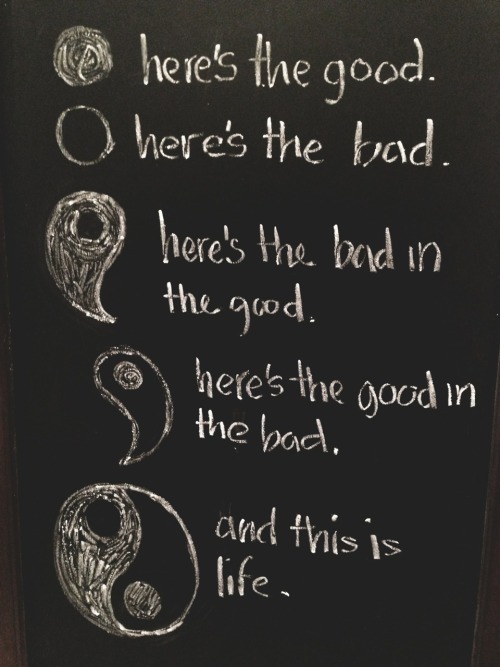 here's the good.
here's the bad.
here's the bad in
the good.
here's the good in
the bad.
and this is
life.